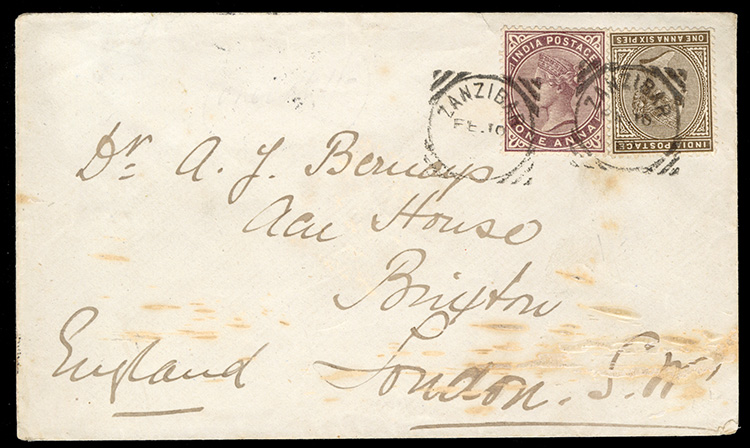 INDIA POSTAGE
ONE ANNA
ONE ANNA SIX PIES
INDIA POSTAGE
ZANZIBAR
FE 10
ZANZIBAR
Dr. A. J. Bernays
House
Brixton
London. S.W.
England